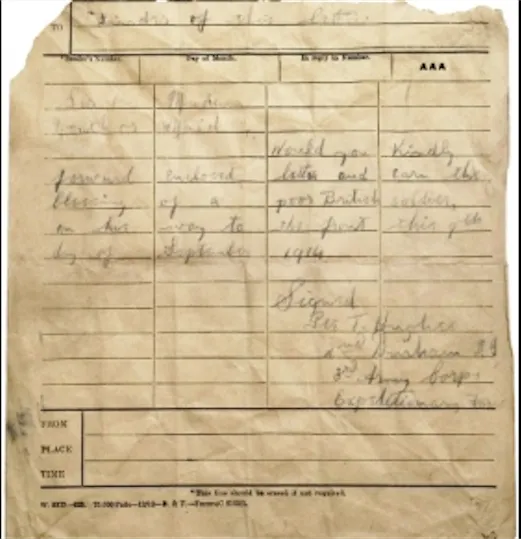 TO Finder of this letter.
*Sender's Number. Day of Month. In reply to Number. AAA
Sir or Madam
youth or maid,
Would you Kindly
forward enclosed letter and earn the
blessing of a poor British soldier,
on his way to the front this 9th
day of September 1914
Signed
Pte T. Hughes
2nd Durham L.I
3rd Army Corps
Expeditionary For
FROM
PLACE
TIME
*This line should be erased if not required.